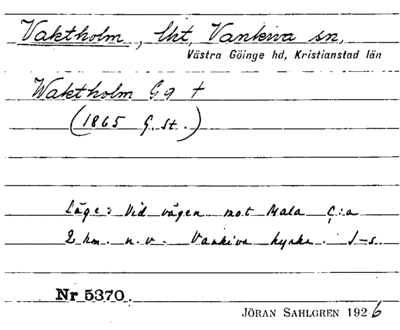 Vaktholm, lht, Vankiva sn,
Västra Göinge hd, Kristianstad län
Waktholm G 9 †
(1865 G. st.)
Läge: Vid vägen mot Mala C:a
2 km. n.v. Vankiva kyrka. J-s.
Nr 5370.
JÖRAN SAHLGREN 1926